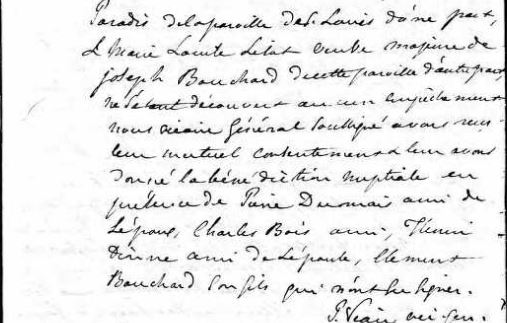 Paradis de la paroisse de St. Louis d'une part,
& Marie Louise veuve majeure de
joseph Bouchard de cette paroisse d'autre part,
ne s'étant découvert aucun empêchement
nous vicaire Général soussigné avons reçu
leur mutuel consentement & leur avons
donné la bénédiction nuptiale en
présence de ami de
l'époux, Charles Bois ami,
ami de l'épouse, Clément
Bouchard son fils qui n'ont su signer.
vic. gen.